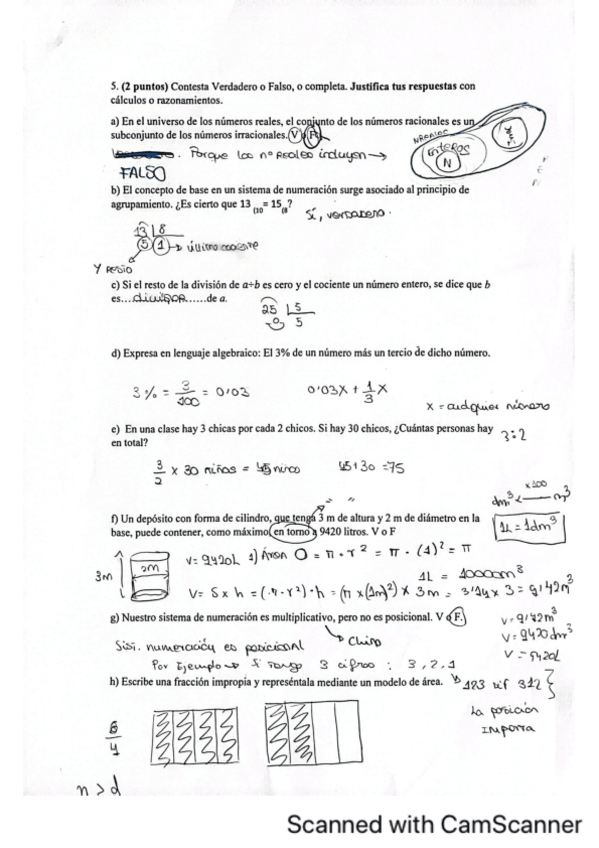 5. (2 puntos) Contesta Verdadero o Falso, o completa. Justifica tus respuestas con
cálculos o razonamientos.
a) En el universo de los números reales, el conjunto de los números racionales es un
subconjunto de los números irracionales. V o F
. Porque los nº Reales incluyen →
Enteros
N
FALSO
b) El concepto de base en un sistema de numeración surge asociado al principio de
agrupamiento. ¿Es cierto que 13 (10 = 15 (8?
Sí, verdadero.
13 | 8
5 1 → último cociente
Y RESTO
c) Si el resto de la división de a÷b es cero y el cociente un número entero, se dice que b
es...divisor......de a.
25 | 5
0 5
d) Expresa en lenguaje algebraico: El 3% de un número más un tercio de dicho número.
3% = 3/100 = 0'03 0'03x + 1/3 x
x = cualquier número
e) En una clase hay 3 chicas por cada 2 chicos. Si hay 30 chicos, ¿Cuántas personas hay
en total?
3:2
3/2 x 30 niños = 45 45+30 = 75
x100
dm³ ← m³
f) Un depósito con forma de cilindro, que tenga 3 m de altura y 2 m de diámetro en la
base, puede contener, como máximo, en torno a 9420 litros. V o F
1L = 1dm³
3m
2m
V= 9420L 1) Área O = π · r² = π · (1)² = π
1L = 1000cm³
V= S x h = (π · r²) · h = (π x (1m)²) x 3m = 3'14 x 3 = 9'42m³
g) Nuestro sistema de numeración es multiplicativo, pero no es posicional. V o F.
V= 9'42m³
V= 9420dm³
V= 9420L
Chino
Sisi. numeración es posicional
Por Ejemplo → Si tengo 3 cifras : 3, 2, 1
h) Escribe una fracción impropia y represéntala mediante un modelo de área.
123 312
La posición
importa
6/4
n > d
Scanned with CamScanner